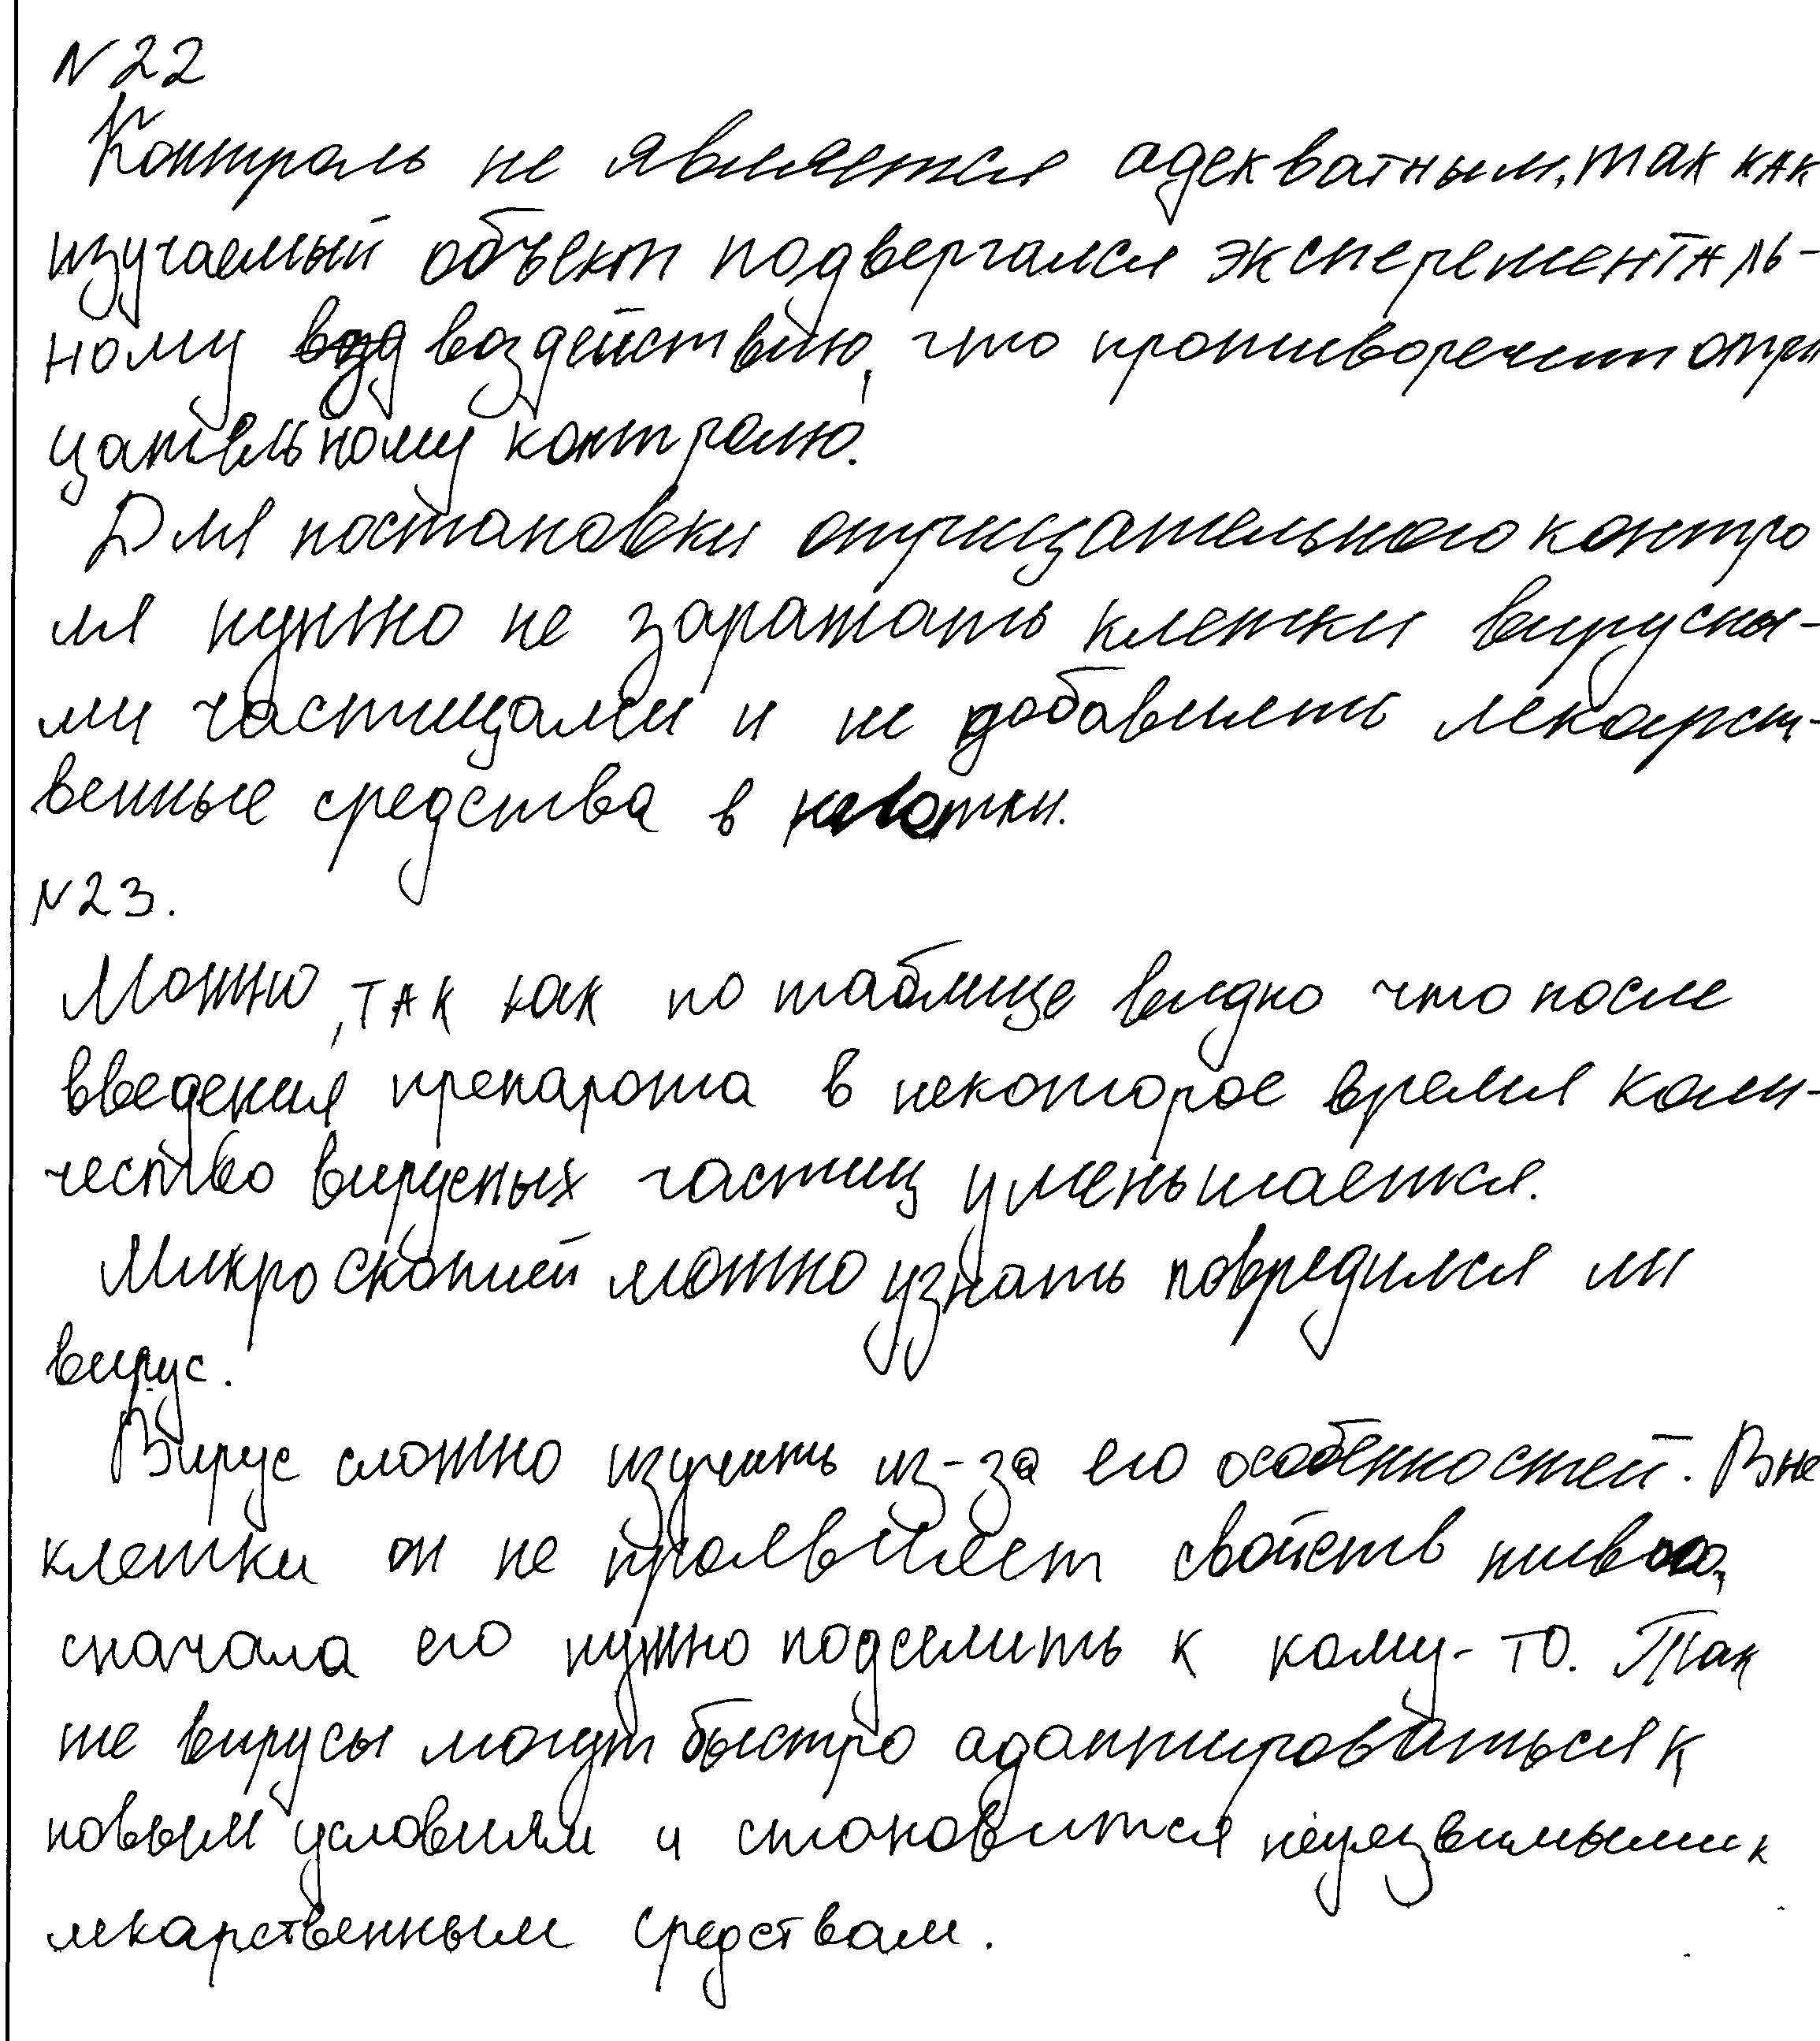 N22
Контроль не является адекватным, так как
изучаемый объект подвергался эксперементаль-
ному воздействию, что противоречит отри
цательному контролю.
Для постановки отрицательного контро
ля нужно не заражать клетки вирусны-
ми частицами и не добавлять лекарст-
венные средства в клетки.
N23.
Можно, так как по таблице видно что после
введения препарата в некоторое время коли-
чество вирусных частиц уменьшается.
Микроскопией можно узнать повредился ли
вирус.
Вирус сложно изучить из-за его особенностей. Вне
клетки он не проявляет свойств живого,
сначала его нужно подселить к кому-то. Так
же вирусы могут быстро адаптироваться к
новым условиям и становится неуязвимыми к
лекарственным средствам.